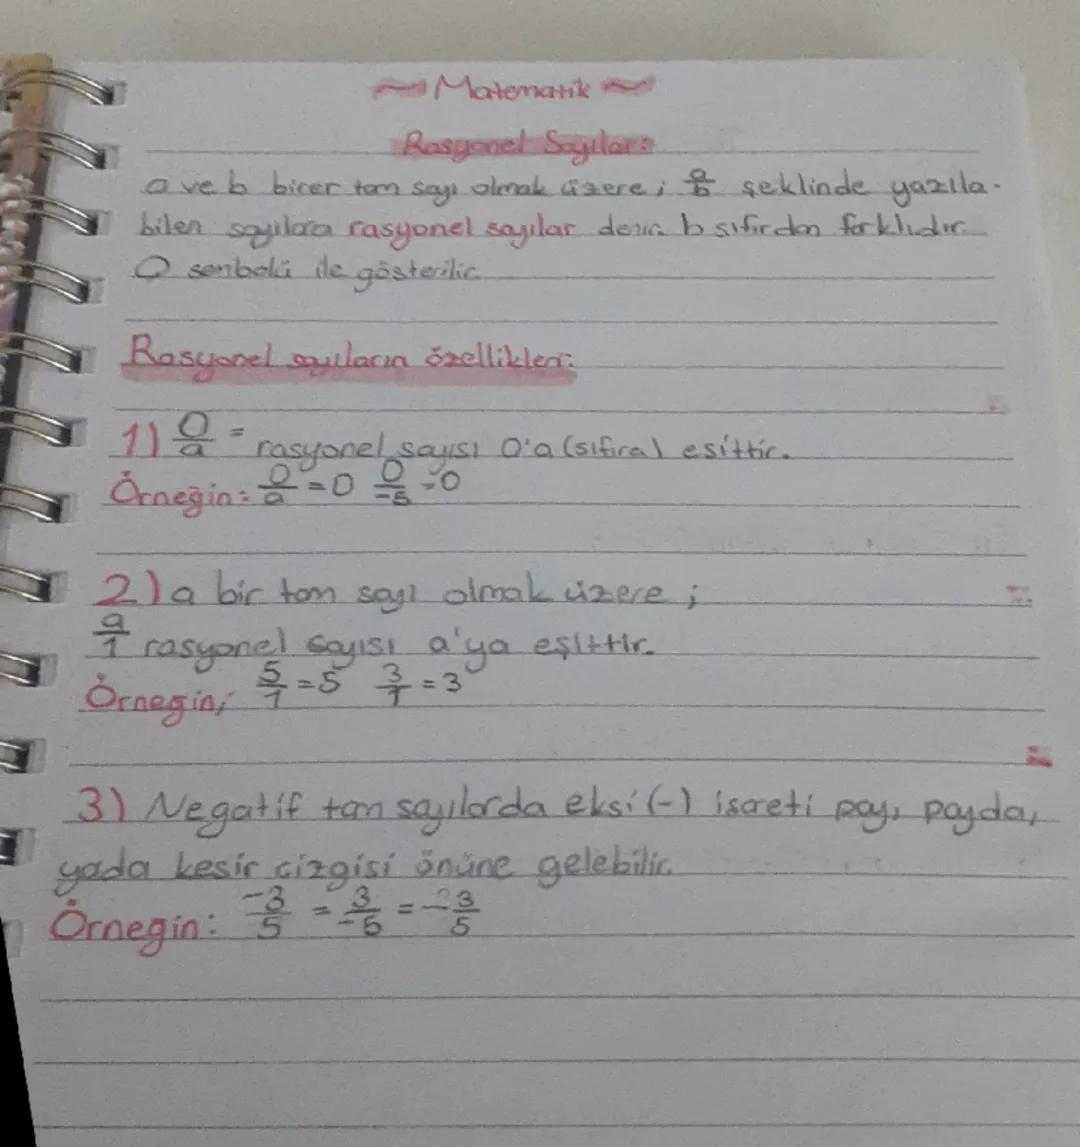 Matematik
Rasyonel Sayılar:
a ve b birer tam sayı olmak üzere; a/b şeklinde yazıla-
bilen sayılara rasyonel sayılar denir. b sıfırdan farklıdır.
Q sembolü ile gösterilir.
Rasyonel sayıların özellikleri:
1) 0/a = rasyonel sayısı 0'a (sıfıra) esittir.
Örneğin: 0/a = 0 0/-5 = 0
2) a bir tam sayı olmak üzere;
a/1 rasyonel sayısı a'ya eşittir.
Örnegin; 5/1 = 5 3/1 = 3
3) Negatif tam sayılarda eksi (-) isareti pay, payda,
yada kesir cizgisi önüne gelebilir.
Örnegin: -3/5 = 3/-5 = -3/5